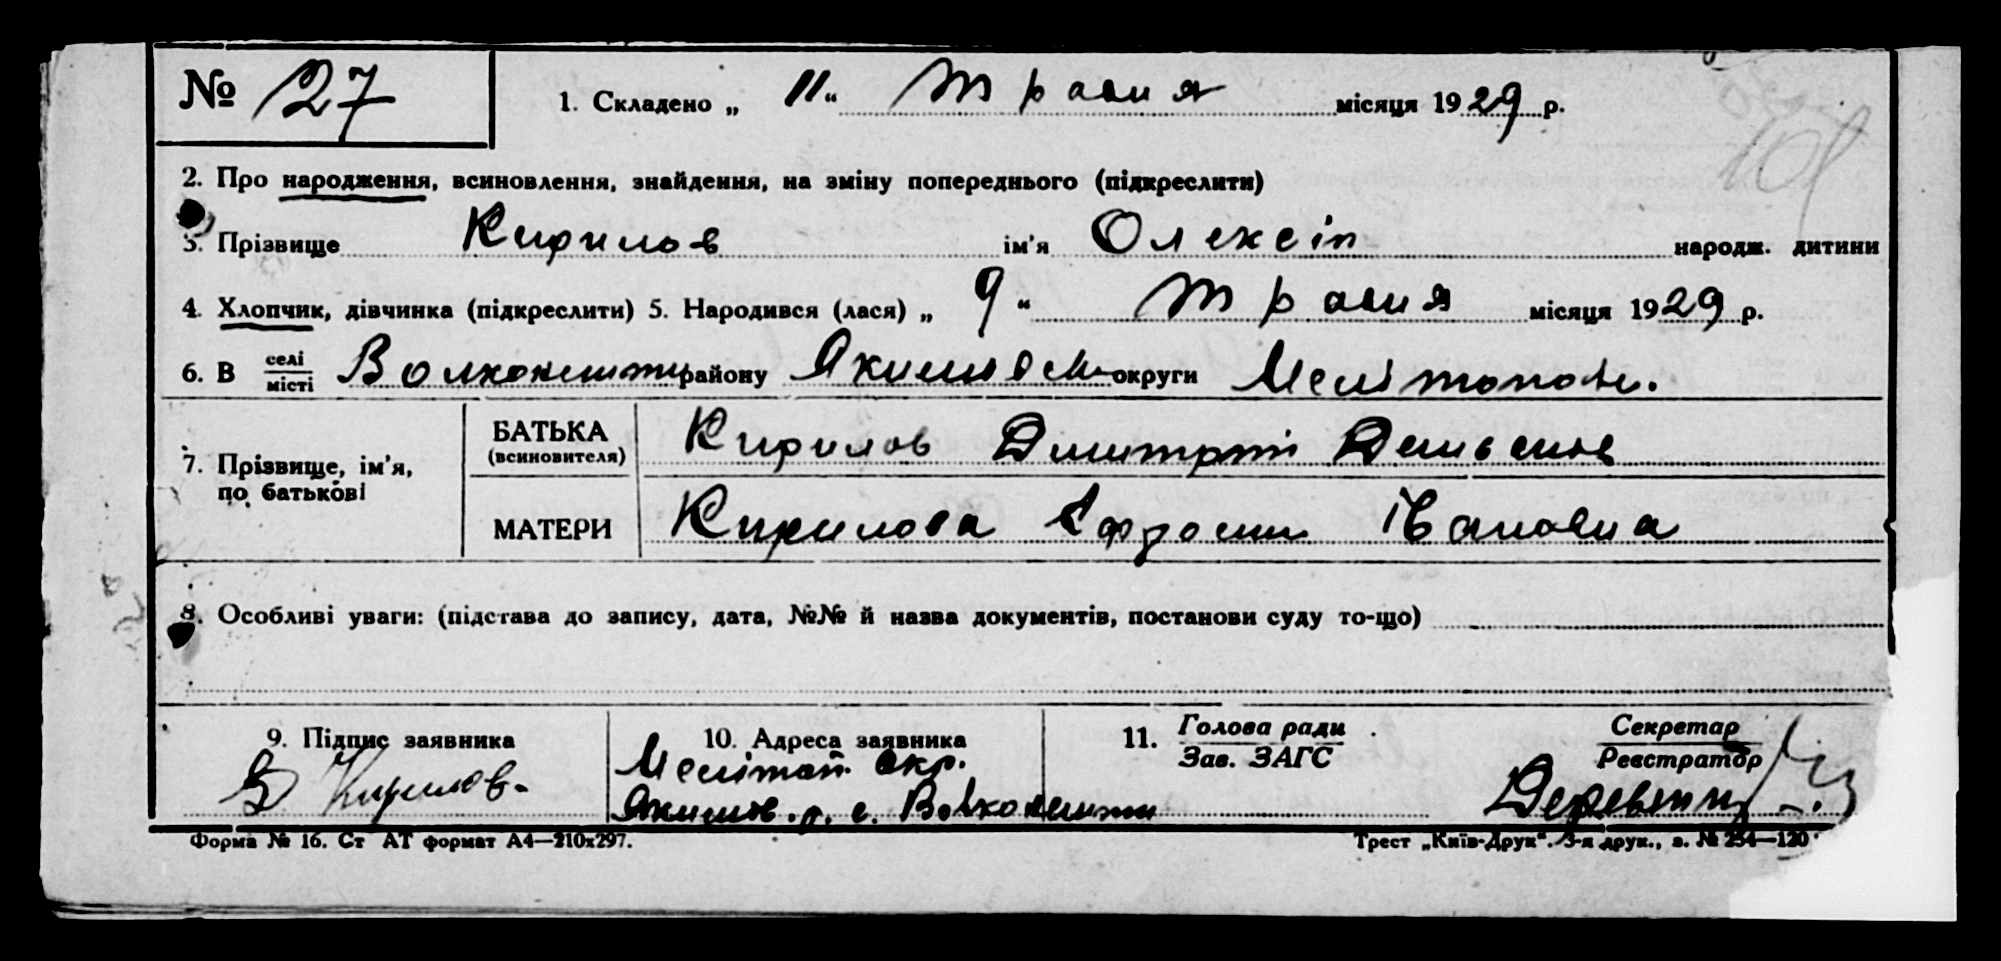 № 27 1. Складено „ 11 “ Травня місяця 1929 р.
2. Про народження, всиновлення, знайдення, на зміну попереднього (підкреслити)
3. Прізвище Кирилов ім'я Олексій народж. дитини
4. Хлопчик, дівчинка (підкреслити) 5. Народився (лася) „ 9 “ Травня місяця 1929 р.
6. В селі/місті району Якимовськ округи Мелітополь.
7. Прізвище, ім'я, по батькові
БАТЬКА (всиновителя) Кирилов Дмитрій
МАТЕРИ Кирилова Івановна
8. Особливі уваги: (підстава до запису, дата, №№ й назва документів, постанови суду то-що)
9. Підпис заявника 10. Адреса заявника 11. Голова ради Секретар
Зав. ЗАГС Реєстратор
Кирилов. Мелітоп. окр.
Якимов. р. с.
Форма № 16. Ст АТ формат А4—210х297. Трест „Київ-Друк“. 3-я друк., з. № 254—120